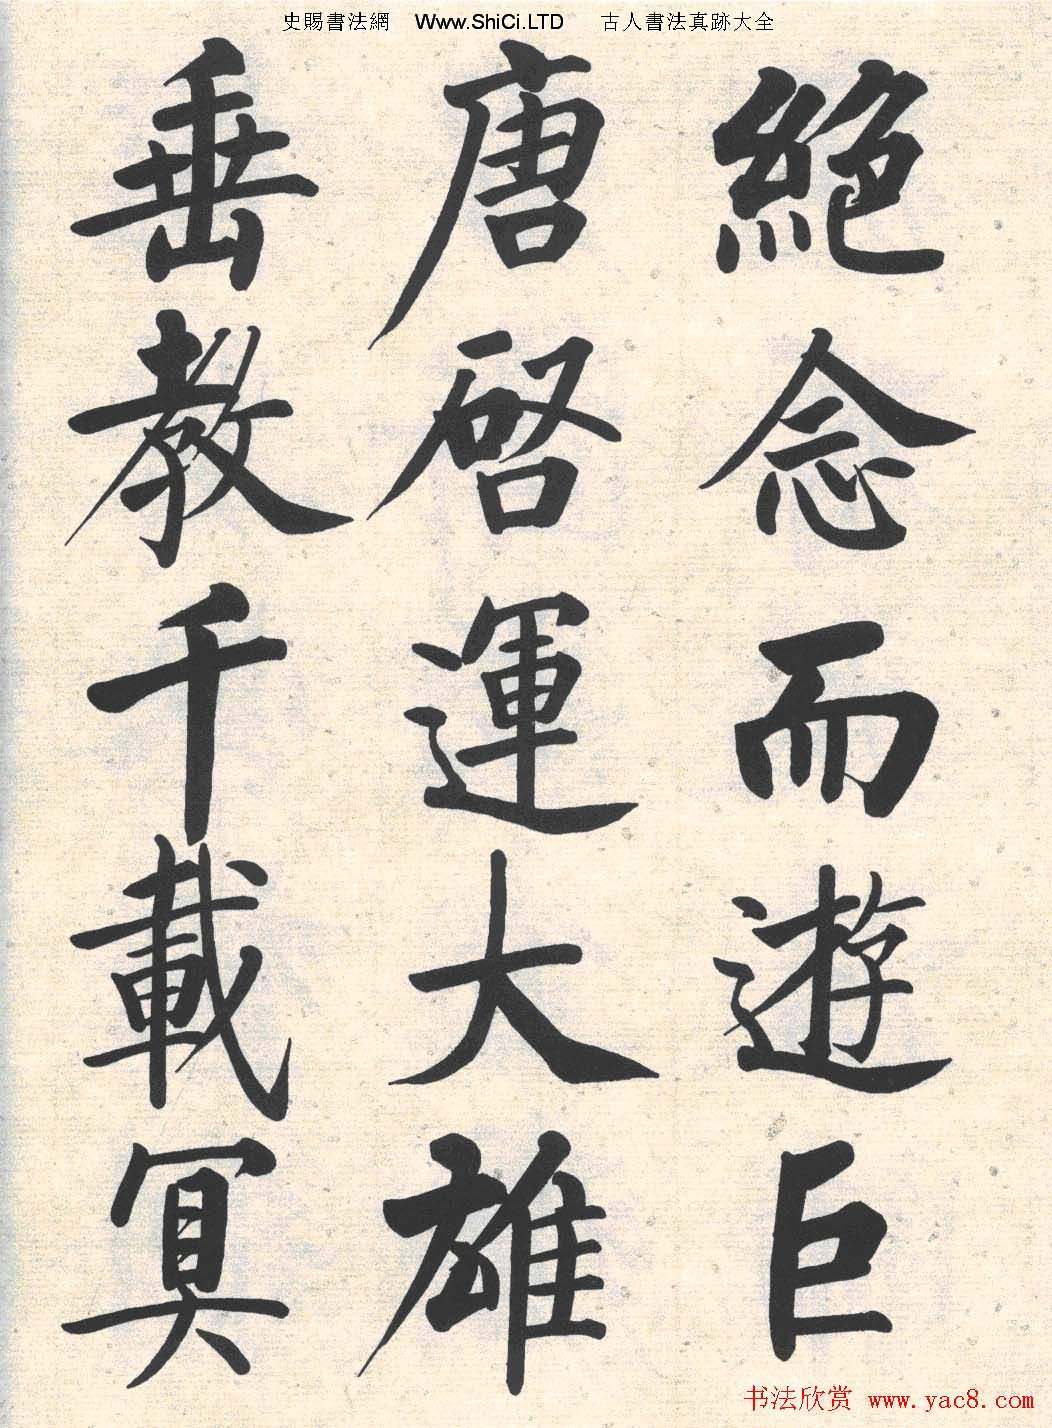 史賜書法網 Www.ShiCi.LTD 古人書法真跡大全
絕念而遊巨
唐啓運大雄
垂教千載冥
书法欣赏 www.yac8.com